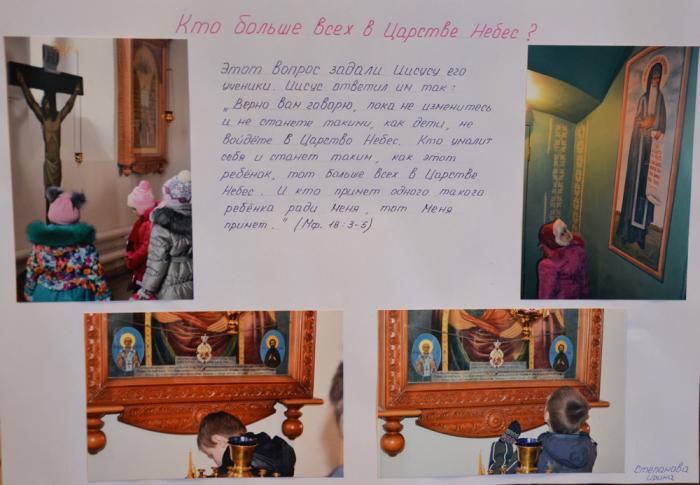 Кто больше всех в Царстве Небес?
Этот вопрос задали Иисусу его
ученики. Иисус ответил им так:
„Верно вам говорю, пока не изменитесь
и не станете такими, как дети, не
войдёте в Царство Небес. Кто умалит
себя и станет таким, как этот
ребёнок, тот больше всех в Царстве
Небес. И кто примет одного такого
ребёнка ради Меня, тот Меня
примет." (Мф. 18:3-5)
Степанова
Ирина